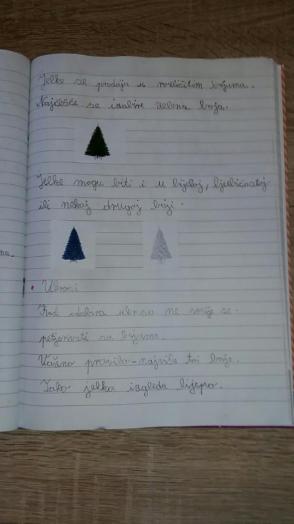 Jelke se prodaju u različitim bojama.
Najčešće se izabire zelena boja.
Jelke mogu biti i u bijeloj, ljubičastoj
ili nekoj drugoj boji.
na.
• Ukrasi
Kod izbora ukrasa ne smije se
pretjerati sa bojama.
Važno pravilo - najviše tri boje.
Tako jelka izgleda lijepo.